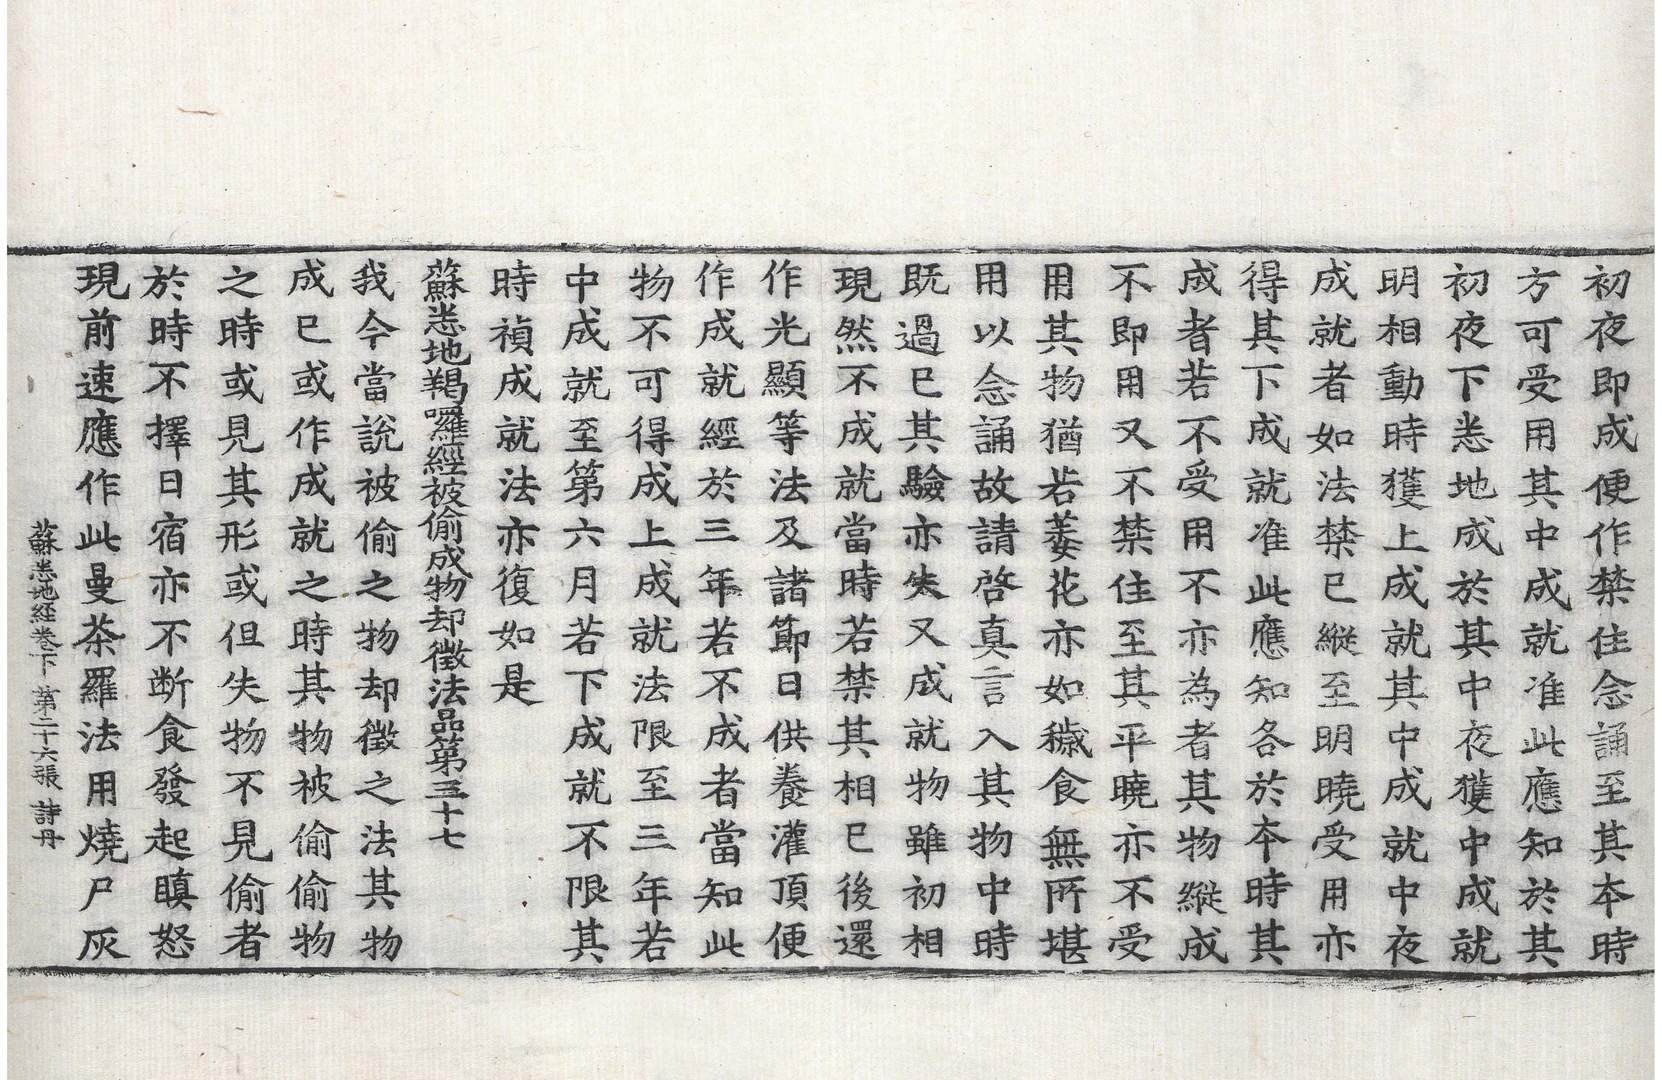 初夜即成便作禁住念誦至其夲時
方可受用其中成就准此應知於其
初夜下悉地成於其中夜獲中成就
明相動時獲上成就其中成就中夜
成就者如法禁已縱至明曉受用亦
得其下成就准此應知各於夲時其
成者若不受用不亦為者其物縱成
不即用又不禁住至其平曉亦不受
用其物猶若萎花亦如穢食無所堪
用以念誦故請啓真言入其物中時
既過已其驗亦失又成就物雖初相
現然不成就當時若禁其相已後還
作光顯等法及諸節日供養灌頂便
作成就經於三年若不成者當知此
物不可得成上成就法限至三年若
中成就至第六月若下成就不限其
時禎成就法亦復如是
蘇悉地羯囉經被偷成物却徵法品第三十七
我今當說被偷之物却徵之法其物
成已或作成就之時其物被偷偷物
之時或見其形或但失物不見偷者
於時不擇日宿亦不断食發起瞋怒
現前速應作此曼荼羅法用燒尸灰
蘇悉地経卷下 第二十六張 詩丹